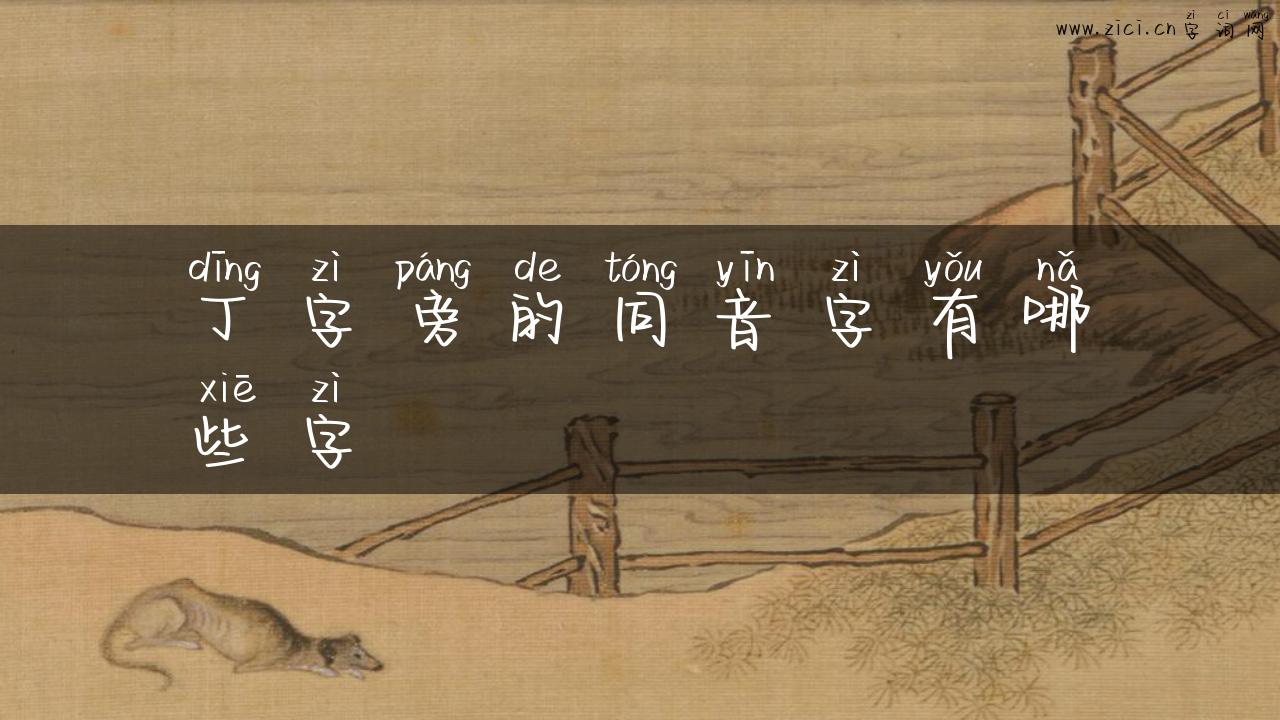 zì cí wǎng
www.zici.cn 字词网
dīng zì páng de tóng yīn zì yǒu nǎ
丁字旁的同音字有哪
xiē zì
些字